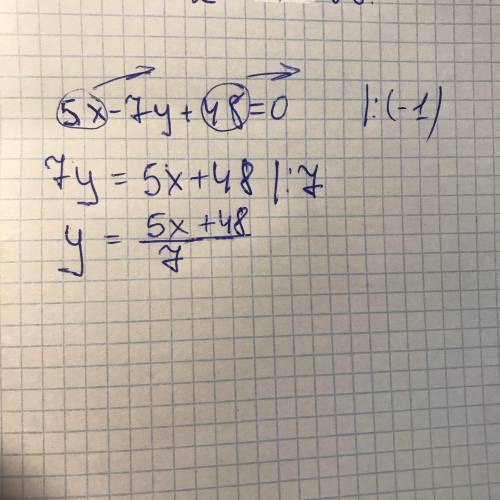 5x-7y+48=0 |:(-1)
7y=5x+48 |:7
y=\frac{5x+48}{7}